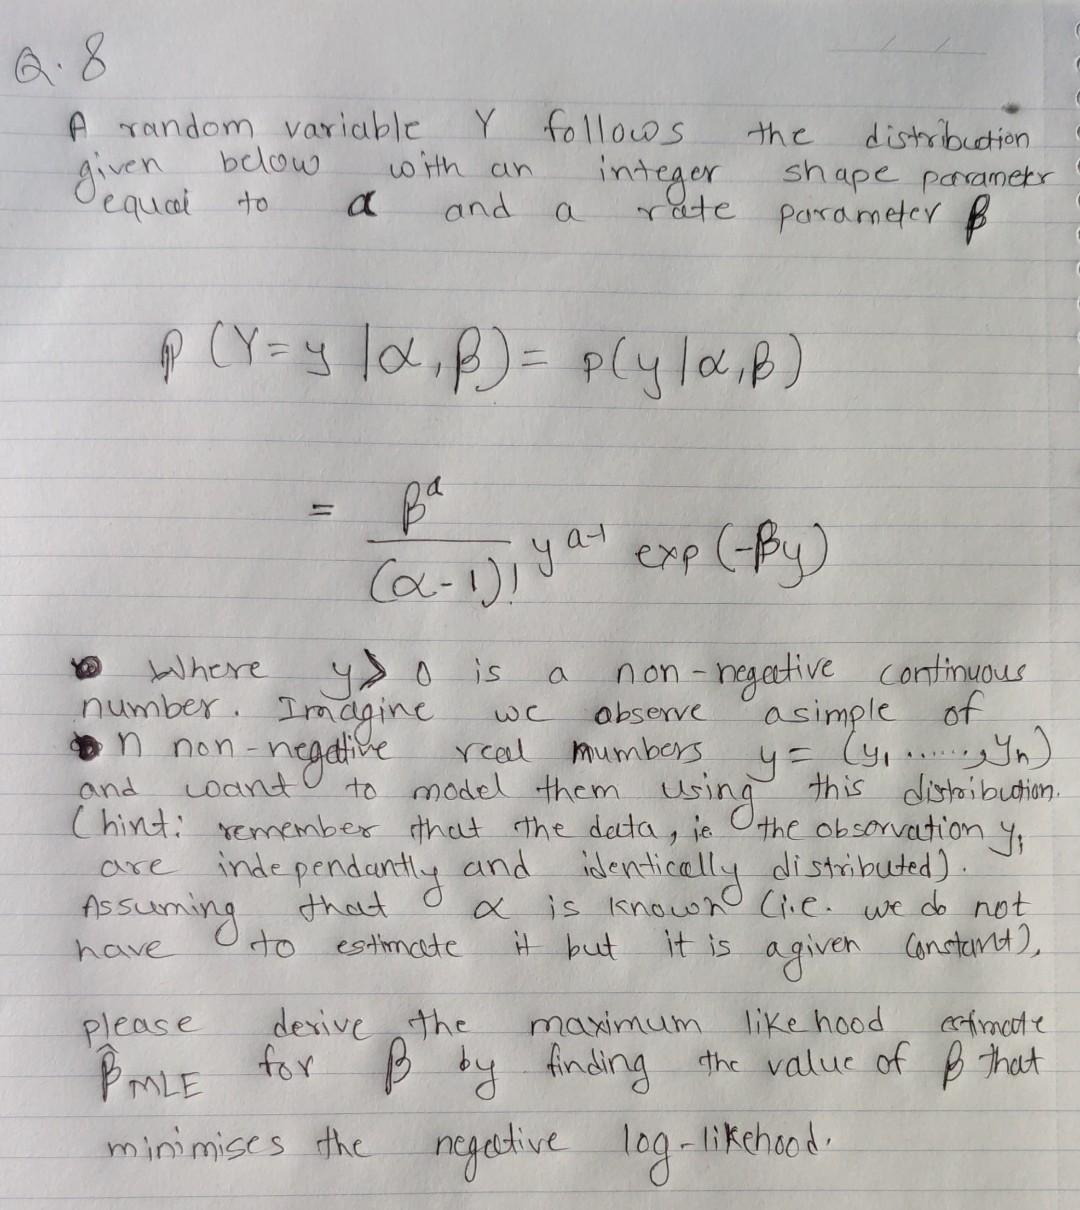 Q. 8
A random variable Y follows the distribution
given below with an integer shape parameter
equal to α and a rate parameter β
P (Y=y | α, β) = p(y | α, β)
= β^α / (α-1)! y^(α-1) exp (-βy)
Where y ≥ 0 is a non-negative continuous
number. Imagine we observe a simple of
n non-negative real numbers y = (y₁ ......, yₙ)
and want to model them using this distribution.
(hint: remember that the data, ie the observation yᵢ
are independantly and identically distributed).
Assuming that α is known (i.e. we do not
have to estimate it but it is a given constant),
please derive the maximum like hood estimate
β̂ MLE for β by finding the value of β that
minimises the negative log-likehood.